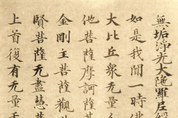 無垢淨光大陁羅尼經
如是我聞一時佛
大比丘衆无量千
他菩薩摩訶薩无
金剛主菩薩觀
賢菩薩无盡意菩
上首復有无量